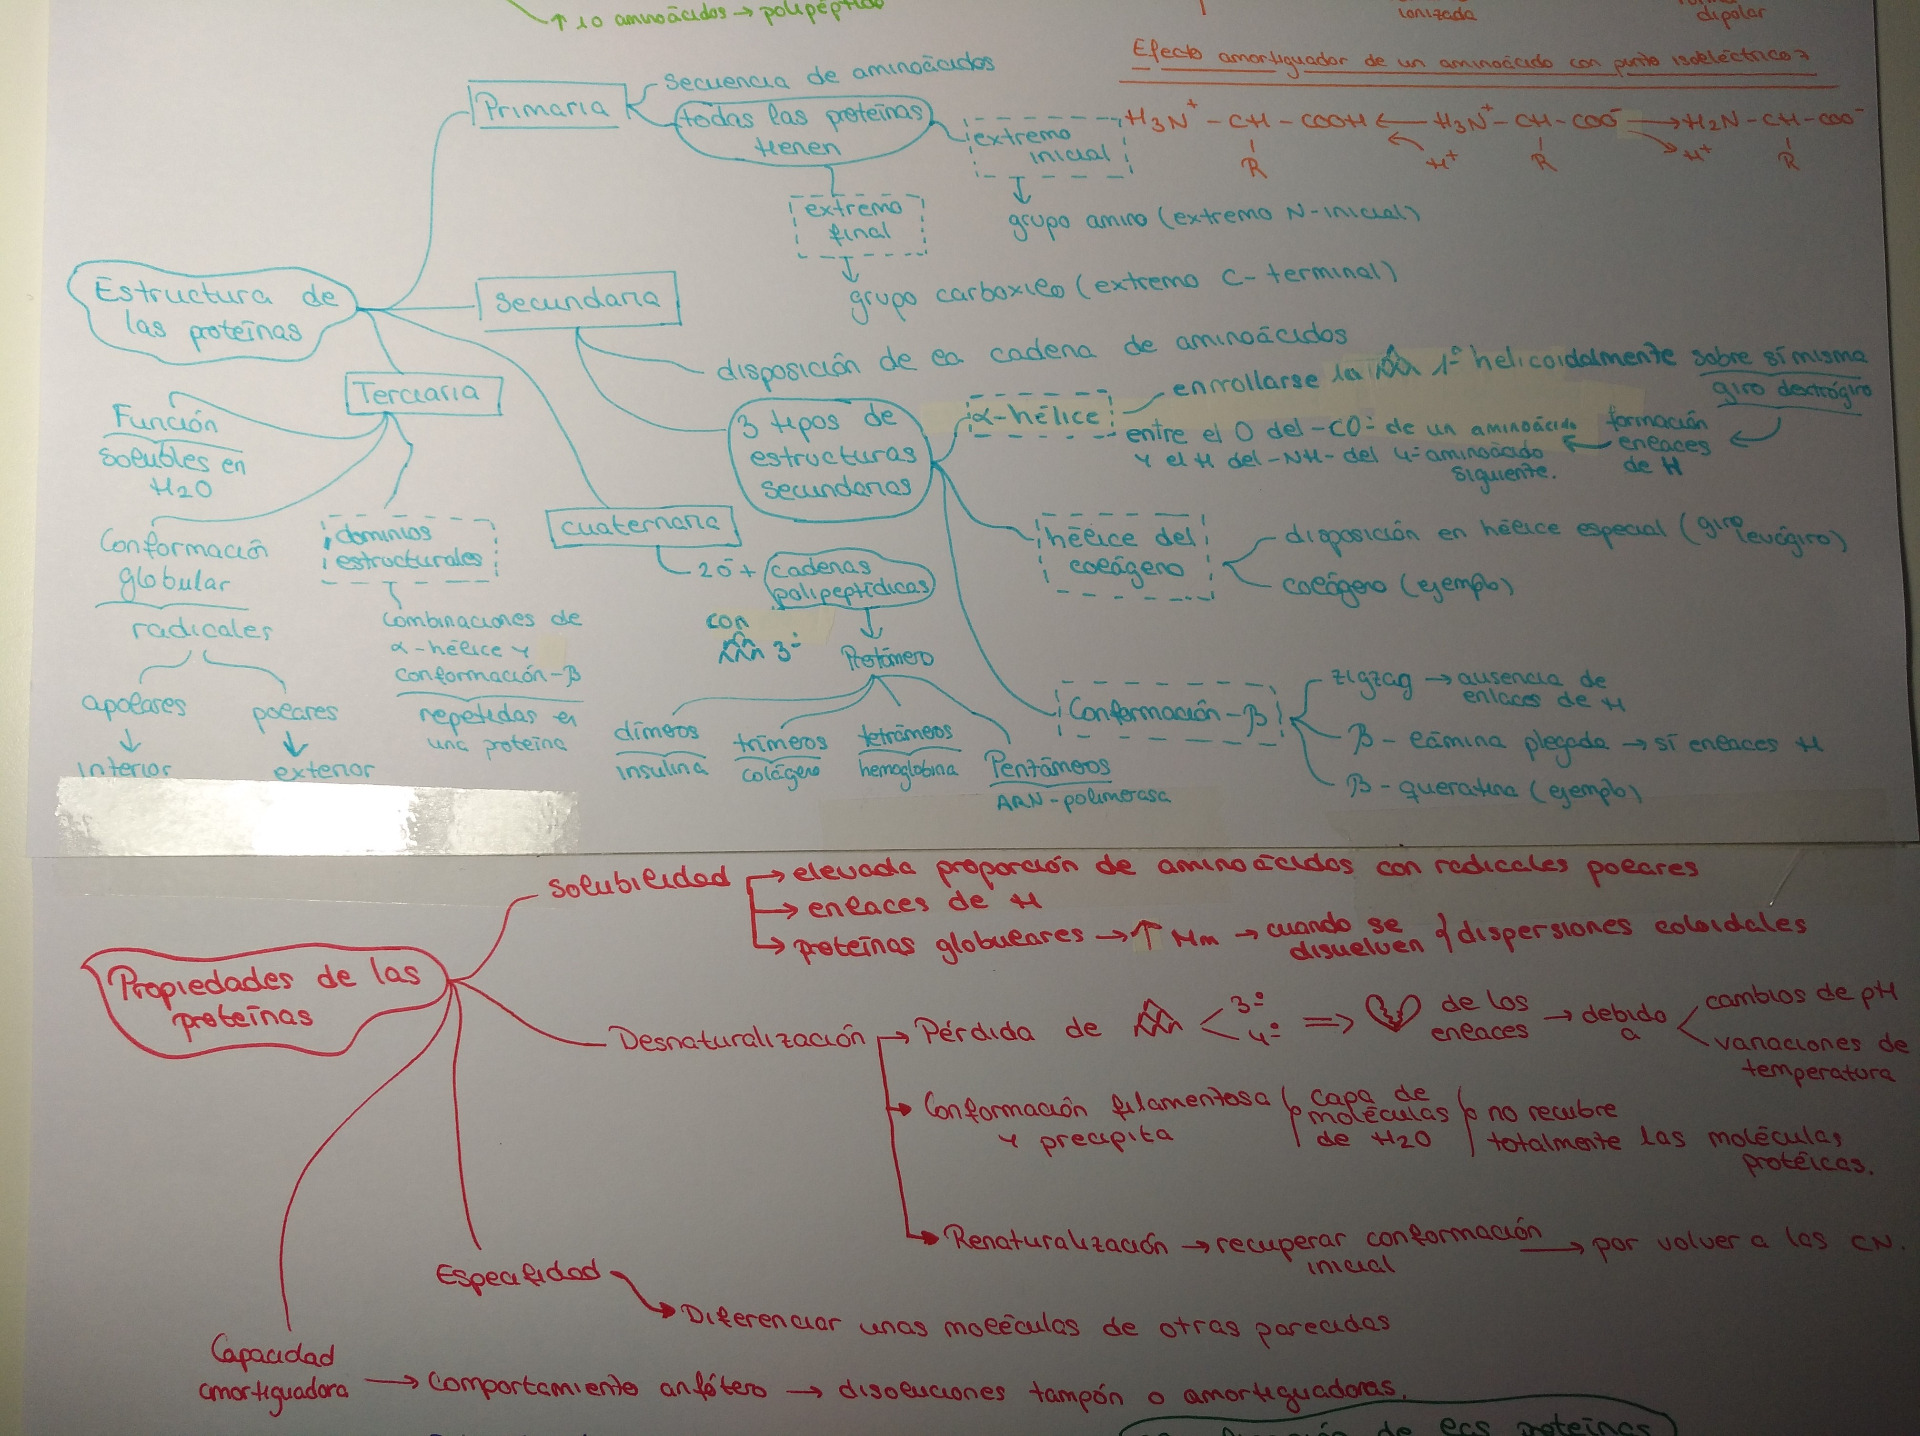 ↑ 10 aminoácidos → polipéptido
ionizada
dipolar
Efecto amortiguador de un aminoácido con punto isoeléctrico
H3N⁺ - CH - COOH ← H3N⁺ - CH - COO⁻ → H2N - CH - COO⁻
R H⁺ R H⁺ R
Estructura de
las proteínas
Primaria
Secuencia de aminoácidos
todas las proteínas
tienen
extremo
inicial
grupo amino (extremo N-inicial)
extremo
final
grupo carboxilo (extremo C-terminal)
Secundaria
disposición de la cadena de aminoácidos
3 tipos de
estructuras
secundarias
α-hélice
enrrollarse la 1º helicoidalmente sobre sí misma
giro dextrógiro
formación
enlaces
de H
entre el O del -CO- de un aminoácido
y el H del -NH- del 4º aminoácido
siguiente.
hélice del
colágeno
disposición en hélice especial (giro levógiro)
colágeno (ejemplo)
Conformación-β
zigzag → ausencia de
enlaces de H
β - lámina plegada → sí enlaces H
β - queratina (ejemplo)
Terciaria
Función
Solubles en
H2O
Conformación
globular
radicales
apolares
interior
polares
exterior
dominios
estructurales
Combinaciones de
α-hélice y
conformación-β
repetidas en
una proteína
Cuaternaria
2 ó + cadenas
polipeptídicas
con
3º
Protómero
dímeros
insulina
trímeros
colágeno
tetrámeros
hemoglobina
Pentámeros
ARN-polimerasa
Propiedades de las
proteínas
Solubilidad
→ elevada proporción de aminoácidos con radicales polares
→ enlaces de H
→ proteínas globulares → ↑ Mm → cuando se
disuelven
dispersiones coloidales
Desnaturalización
→ Pérdida de < 3º
4º
⇒ de los
enlaces
→ debido
a
cambios de pH
variaciones de
temperatura
Conformación filamentosa
y precipita
capa de
moléculas
de H2O
no recubre
totalmente las moléculas
protéicas.
Renaturalización → recuperar conformación
inicial
→ por volver a las CN.
Especifidad
Diferenciar unas moléculas de otras parecidas
Capacidad
amortiguadora
→ Comportamiento anfótero → disoluciones tampón o amortiguadoras.
de las proteínas